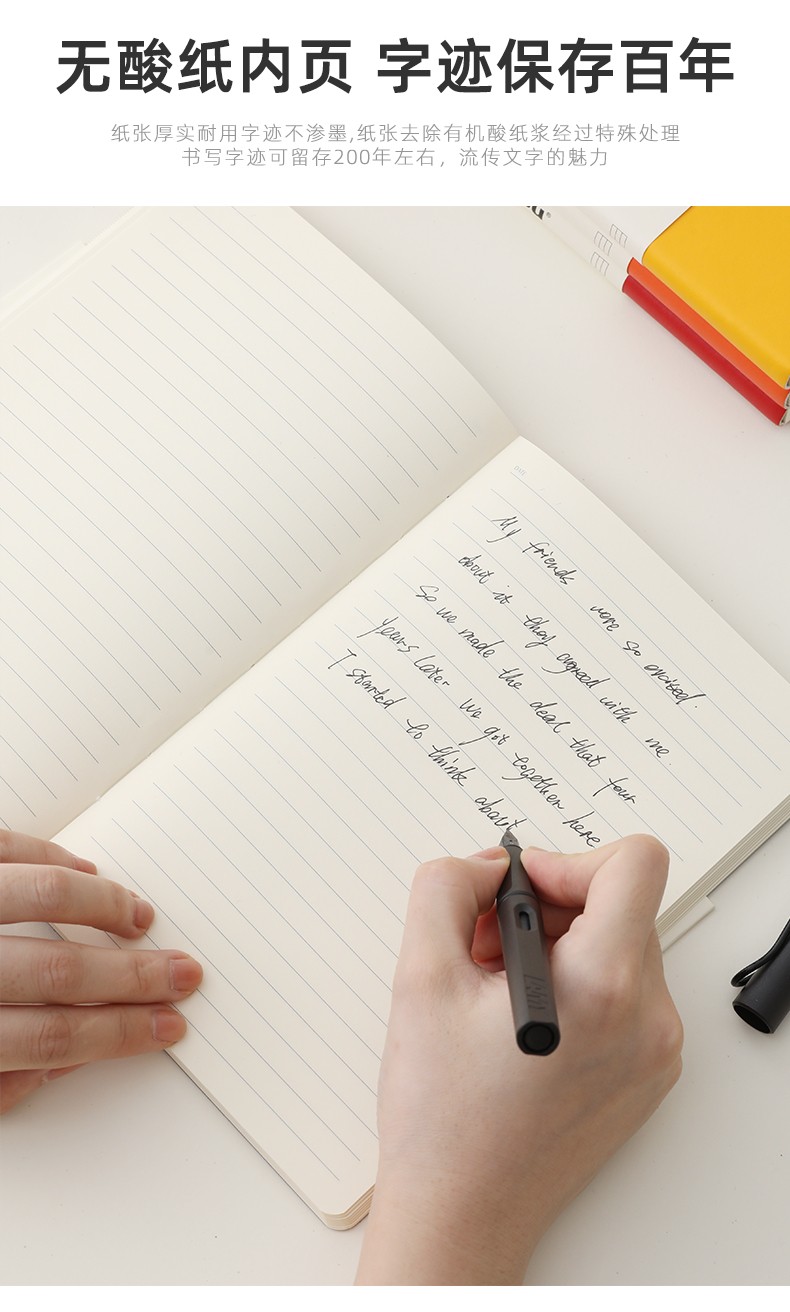 无酸纸内页 字迹保存百年
纸张厚实耐用字迹不渗墨,纸张去除有机酸纸浆经过特殊处理
书写字迹可留存200年左右，流传文字的魅力
My friends were so excited.
about it they agreed with me.
So we made the deal that four
years later we got together here
I started to think about